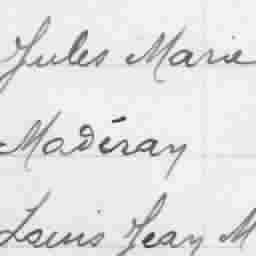 Jules Marie
Madéray
Louis Jean M